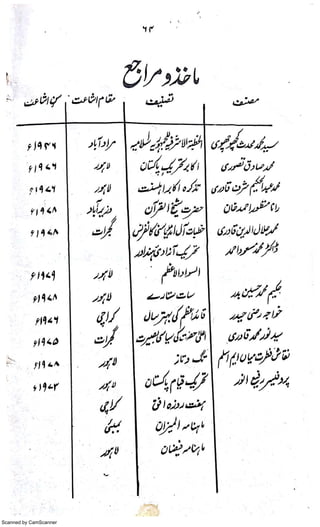 ۶۴
ماخذ و مراجع
مصنف تصنیف مقام اشاعت سن اشاعت
سید محمد محدث کچھوچھوی الخطبۃ الاشرفیہ للجمہوریۃ الاسلامیہ مراد آباد ۱۹۴۶ء
محمد صادق قصوری اکابر تحریک پاکستان لاہور ۱۹۷۶ء
محمد عبدالحکیم شرف قادری تذکرہ اکابر اہلسنت لاہور ۱۹۷۶ء
رانا منظور احمد خان حضرت شیخ القرآن وزیرآباد ۱۹۷۸ء
محمد جلال الدین قادری خطبات آل انڈیا سنی کانفرنس گجرات ۱۹۷۸ء
ڈاکٹر محمد مسعود احمد تحریک آزادی ہند اور
السواد الاعظم لاہور ۱۹۷۹ء
حکیم محمد حسین بدر سات ستارے لاہور ۱۹۷۸ء
خواجہ رضی حیدر قائداعظم کی بہتر سال کراچی ۱۹۷۶ء
سید نور محمد قادری اعلیٰ حضرت کی سیاسی بصیرت گجرات ۱۹۷۵ء
نقاش فطرت میاں ایم اسلم تگ و تاز لاہور ۱۹۷۸ء
پروفیسر رفیع انور تحریک قیام پاکستان لاہور ۱۹۷۳ء
ہفت روزہ افق کراچی
ماہنامہ المیزان بمبئی
ماہنامہ فیضان لاہور
Scanned by CamScanner